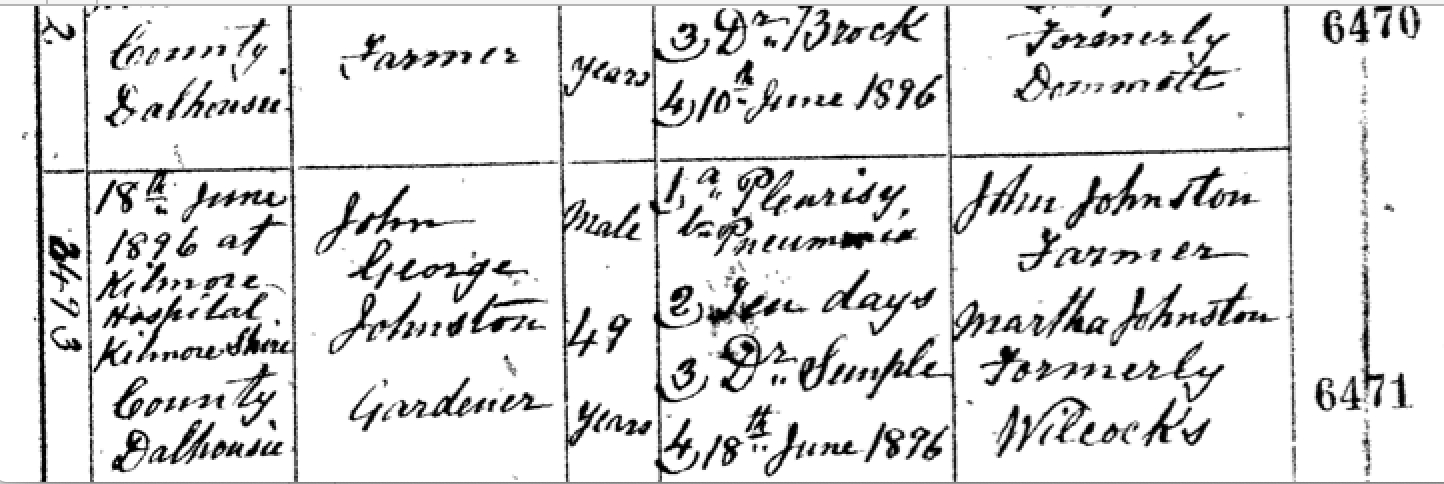 2.
County
Dalhousie.
Farmer
years
3, Dr. Brock
4, 10th June 1896
Formerly
Dommett
6470
8493
18th June
1896 at
Kilmore
Hospital
Kilmore Shire
County
Dalhousie
John
George
Johnston
Gardener
Male
49
years
1, a Pleurisy,
b Pneumonia
2, Ten days
3, Dr. Semple
4, 18th June 1896
John Johnston
Farmer
Martha Johnston
Formerly
Wilcocks
6471